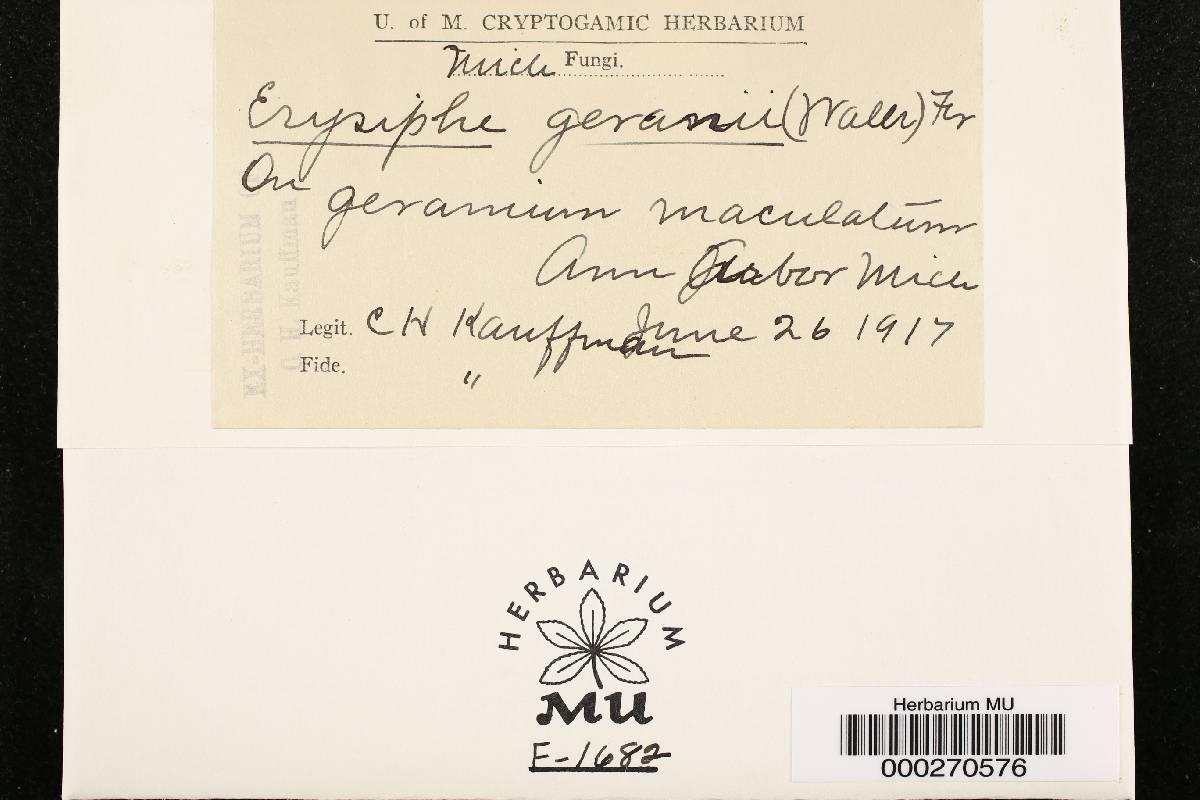 U. of M. CRYPTOGAMIC HERBARIUM
Mich Fungi.
Erysiphe geranii (Wallr) Fr
On geranium maculatum
Ann Arbor Mich
Legit. C H Kauffman June 26 1917
Fide. "
EX-HERBARIUM
C H Kauffman
HERBARIUM
MU
F-1682
Herbarium MU
000270576